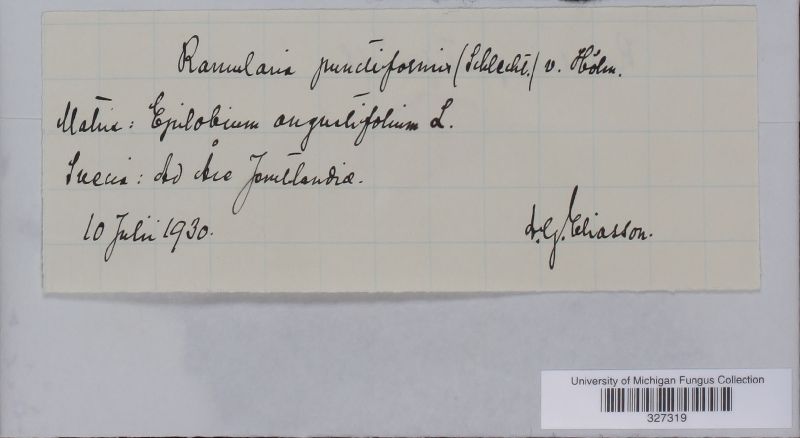 Ramularia punctiformis (Schlecht.) v. Höhn.
Matrix: Epilobium angustifolium L.
Suecia: Ad Åre Jemtlandiæ.
10 Julii 1930.
A.G. Eliasson.
University of Michigan Fungus Collection
327319